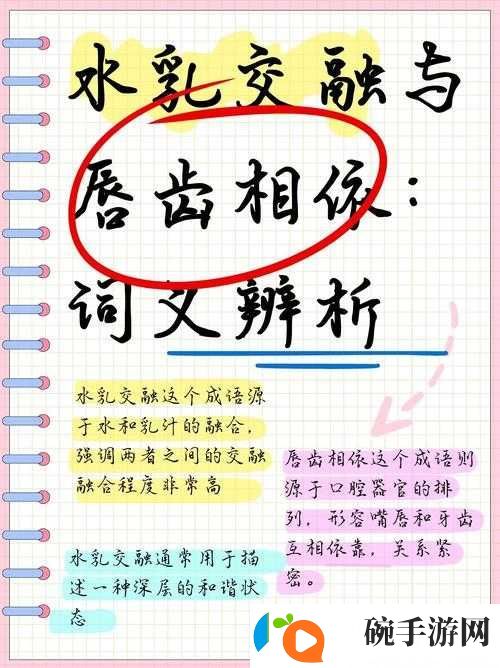 水乳交融与
唇齿相依：
词义辨析
水乳交融这个成语源
于水和乳汁的融合，
强调两者之间的交融
融合程度非常高
唇齿相依这个成语则
源于口腔器官的排
列，形容嘴唇和牙齿
互相依靠，关系紧
密。
水乳交融通常用于描
述一种深层的和谐状
态
碗手游网